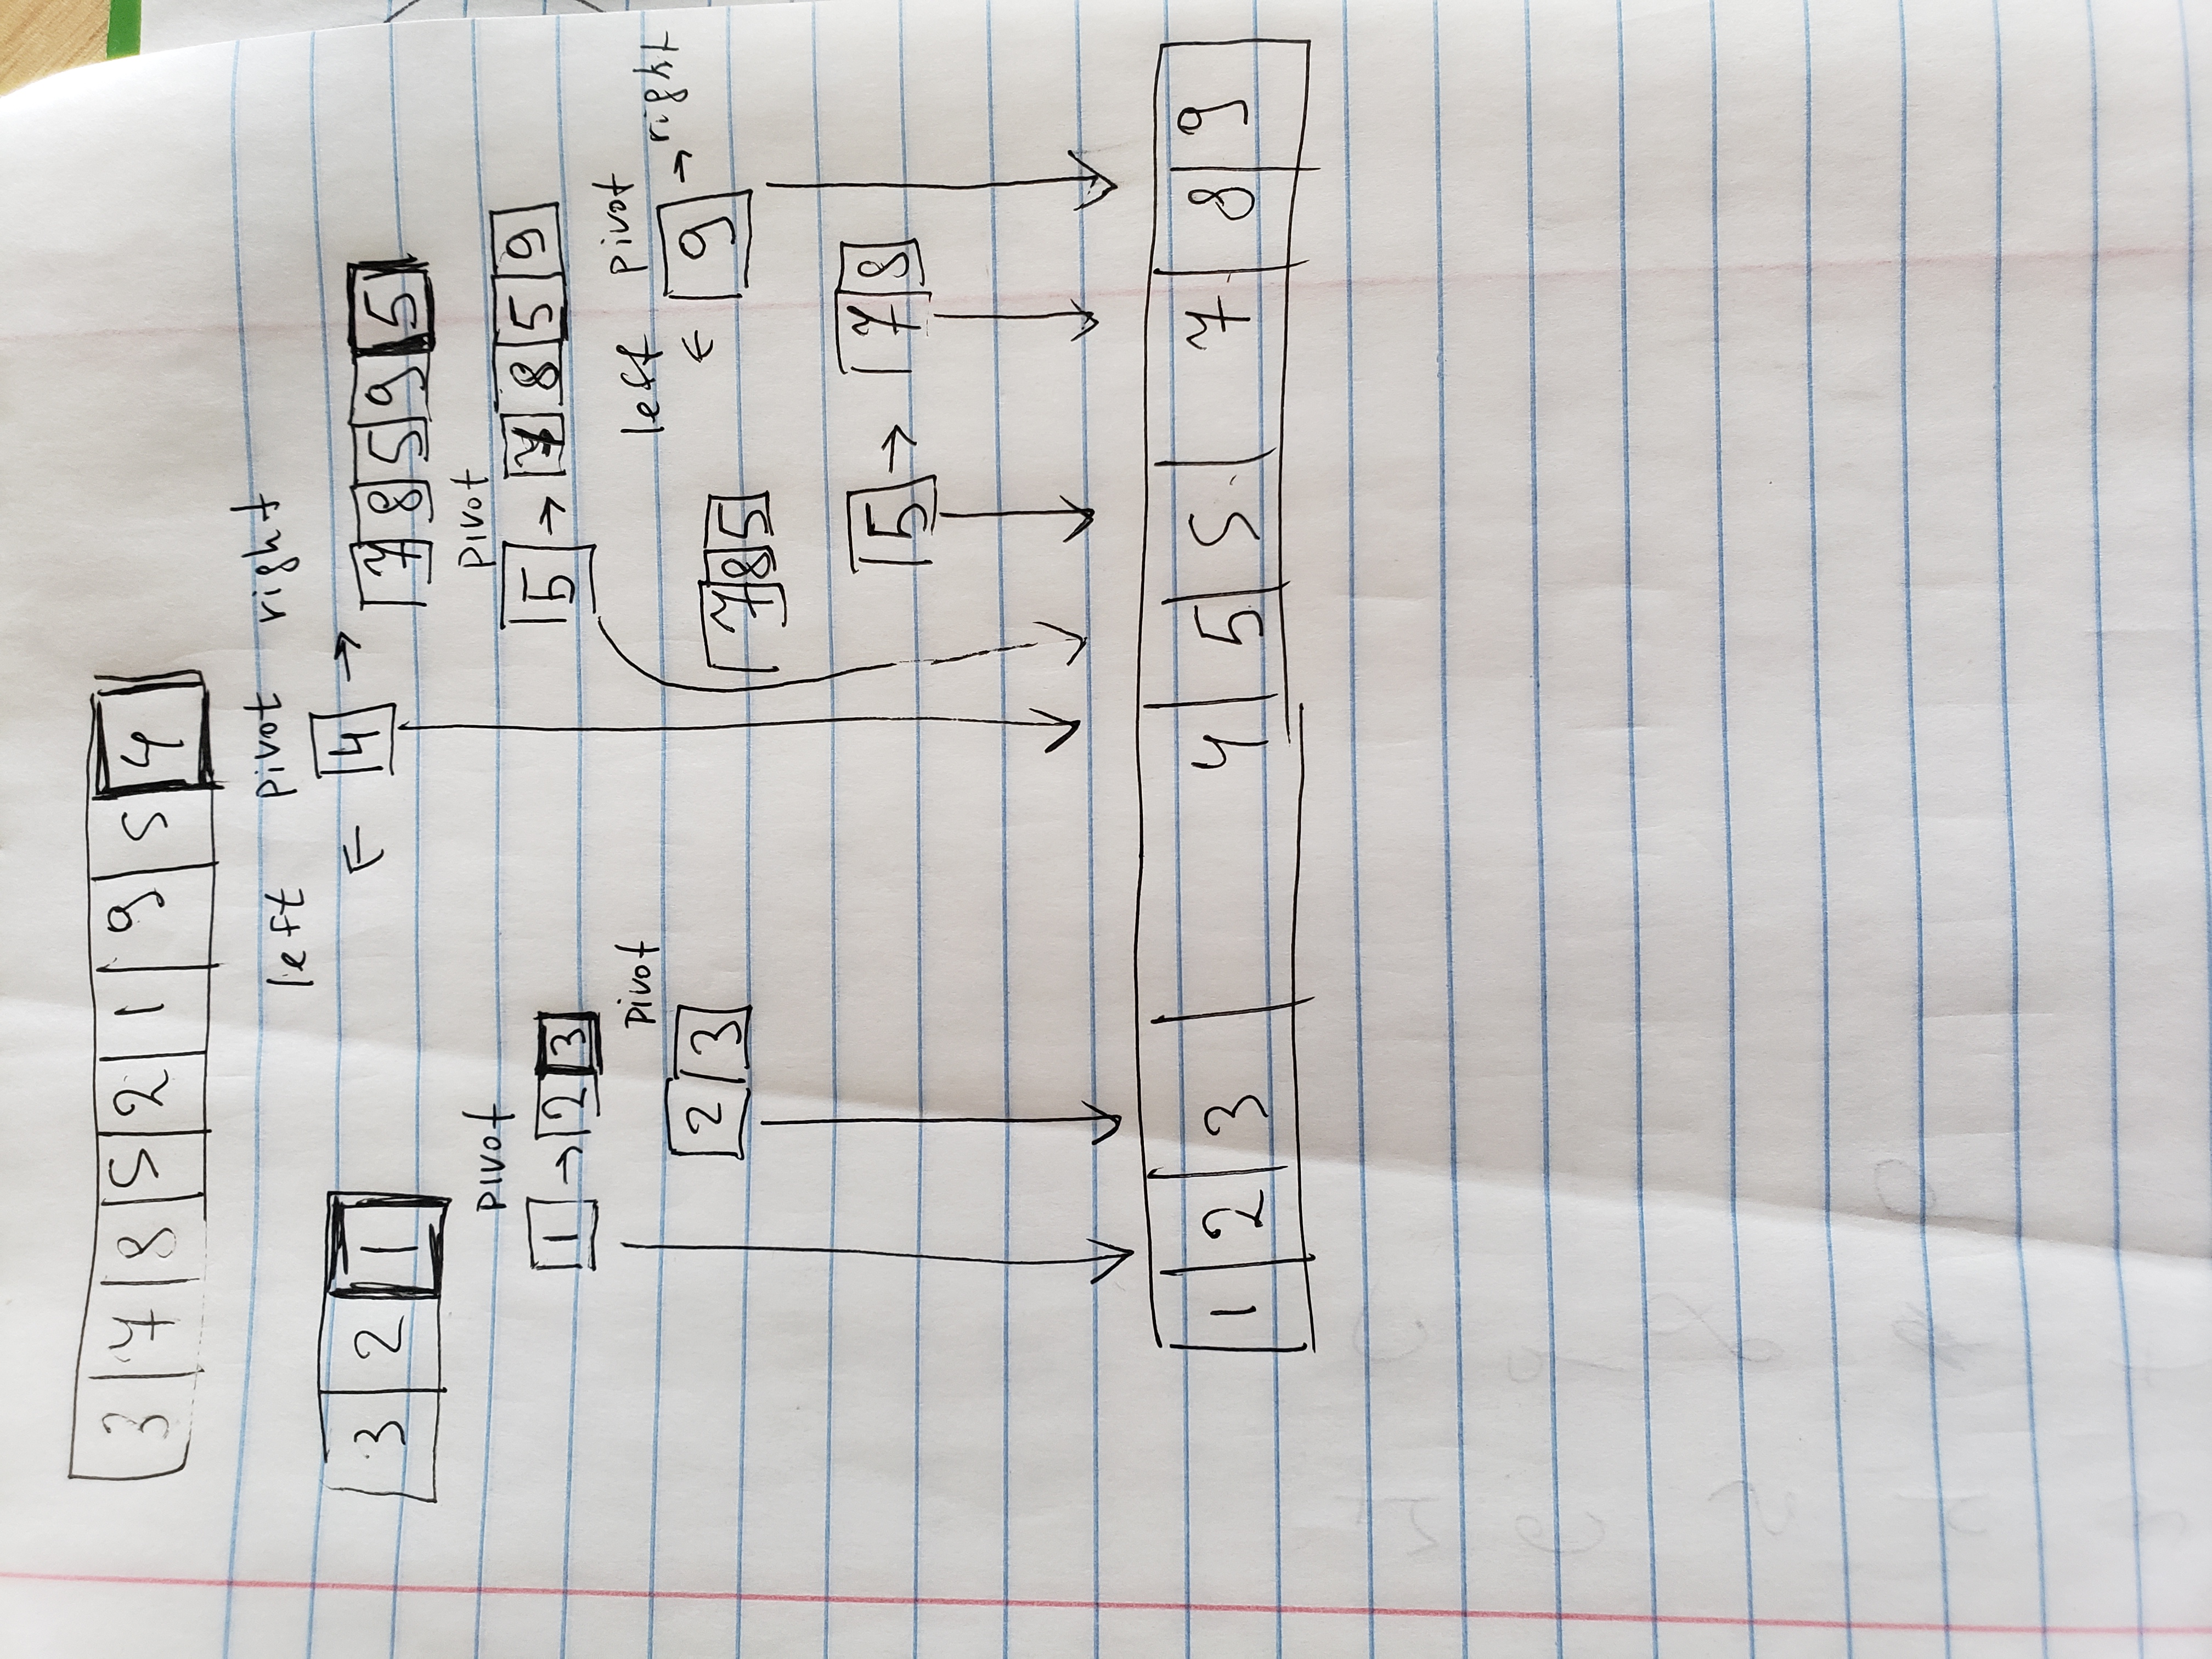 3 7 8 5 2 1 9 5 4
left pivot right
3 2 1 ← 4 → 7 8 5 9 5
pivot pivot
1 → 2 3 5 → 7 8 5 9
pivot left pivot right
2 3 7 8 5 ← 9 →
5 → 7 8
1 2 3 4 5 5 7 8 9